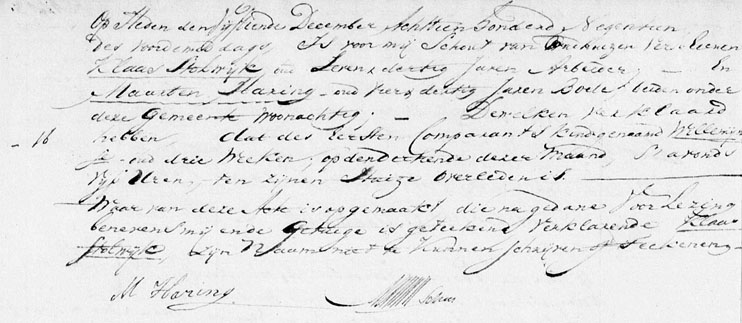 Op Heden den vyftiende December Achttien Honderd Negentien
des voordemiddags, Is voor mij Schout van verscheenen
Klaas Stolwyk oud Seven & dertig Jaren Arbeider, - En
Maarten Haring - oud vier & dertig Jaren Bode beiden onder
deze Gemeente Woonachtig; - Dewelken Verklaard
- 16 hebben, dat des Eersten Comparants kind genaamd Willemijn
je - oud drie Weken, op den dertiende dezer Maand, S'avonds
vijf Uren, ten zijnen Huize Overleden is. -
Waar van deze Akte is opgemaakt die na gedane Voorlezing
benevens mij ende Getuige is geteekend Verklarende Klaas
Stolwyk zijn Naam niet te kunnen schrijven of teekenen -
M Haring. Schout